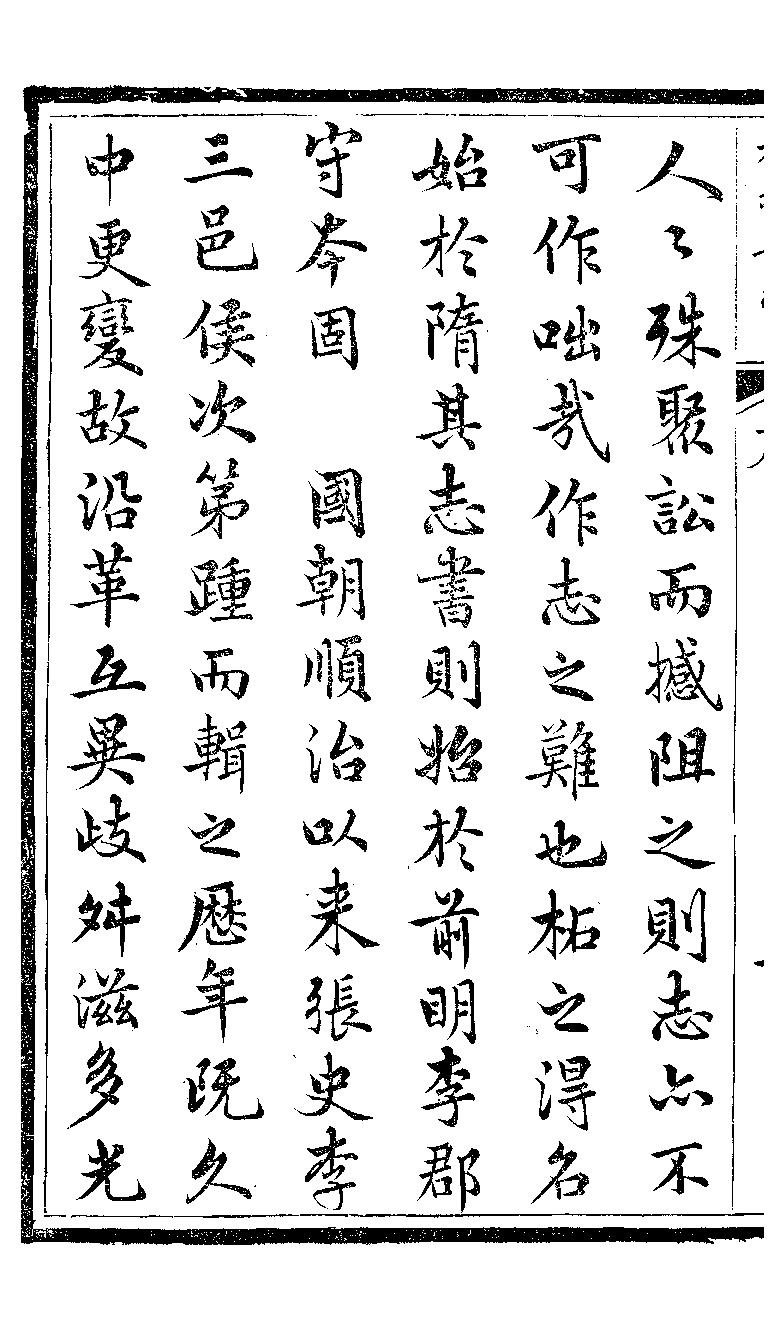 人〻殊聚訟而撼阻之則志亦不
可作咄哉作志之難也柘之得名
始於隋其志書則始於前明李郡
守本固　國朝順治以来張史李
三邑侯次第踵而輯之歷年既久
中更變故沿革互異歧舛滋多光